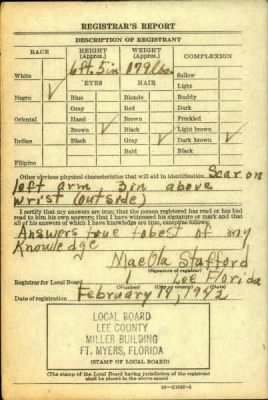 REGISTRAR'S REPORT
DESCRIPTION OF REGISTRANT
RACE HEIGHT (Approx.) WEIGHT (Approx.) COMPLEXION
White 6ft. 5in 179 lbs. Sallow
EYES HAIR Light
Negro ✓ Blue Blonde Ruddy
Gray Red Dark
Oriental Hazel Brown Freckled
Brown ✓ Black Light brown ✓
Indian Black Gray ✓ Dark brown
Bald Black
Filipino
Other obvious physical characteristics that will aid in identification Scar on
left arm, 3in above
wrist (outside)
I certify that my answers are true; that the person registered has read or has had
read to him his own answers; that I have witnessed his signature or mark and that
all of his answers of which I have knowledge are true, except as follows:
Answers true to best of my
Knowledge
Mae Ola Stafford
(Signature of registrar)
Registrar for Local Board 1 Lee Florida
(Number) (City or county) (State)
Date of registration February 1942
LOCAL BOARD
LEE COUNTY
MILLER BUILDING
FT. MYERS, FLORIDA
(STAMP OF LOCAL BOARD)
(The stamp of the Local Board having jurisdiction of the registrant
shall be placed in the above space)